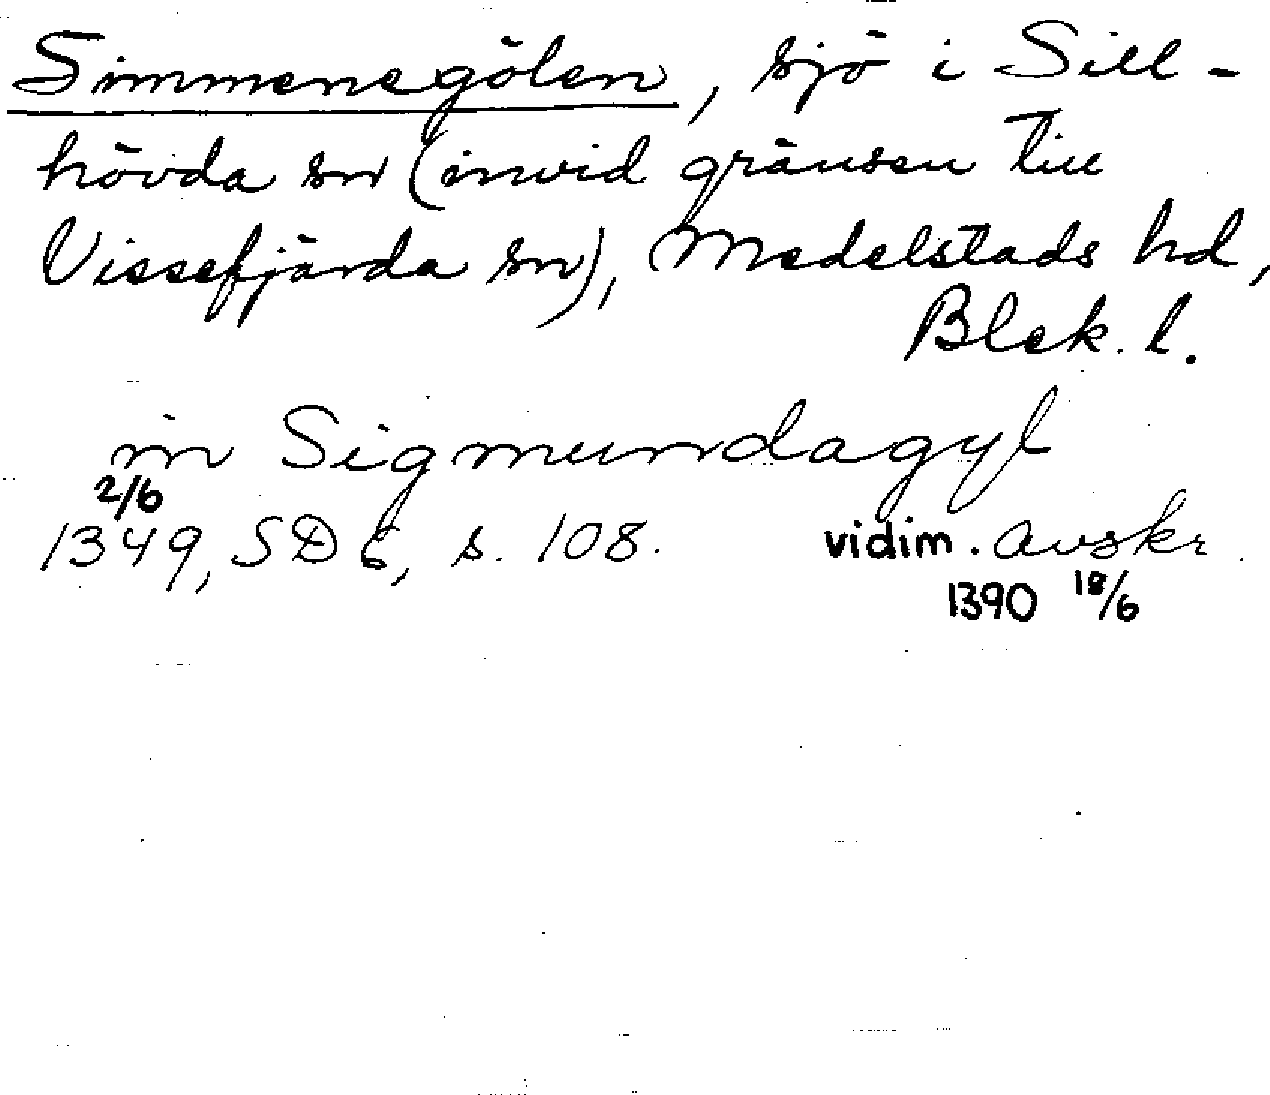 Simmenegölen, sjö i Sill-
hövda sn (invid gränsen till
Vissefjärda sn), Medelstads hd,
Blek. l.
in Sigmundagyl
2/6
1349, SD 6, s. 108. vidim. avskr.
1390 18/6